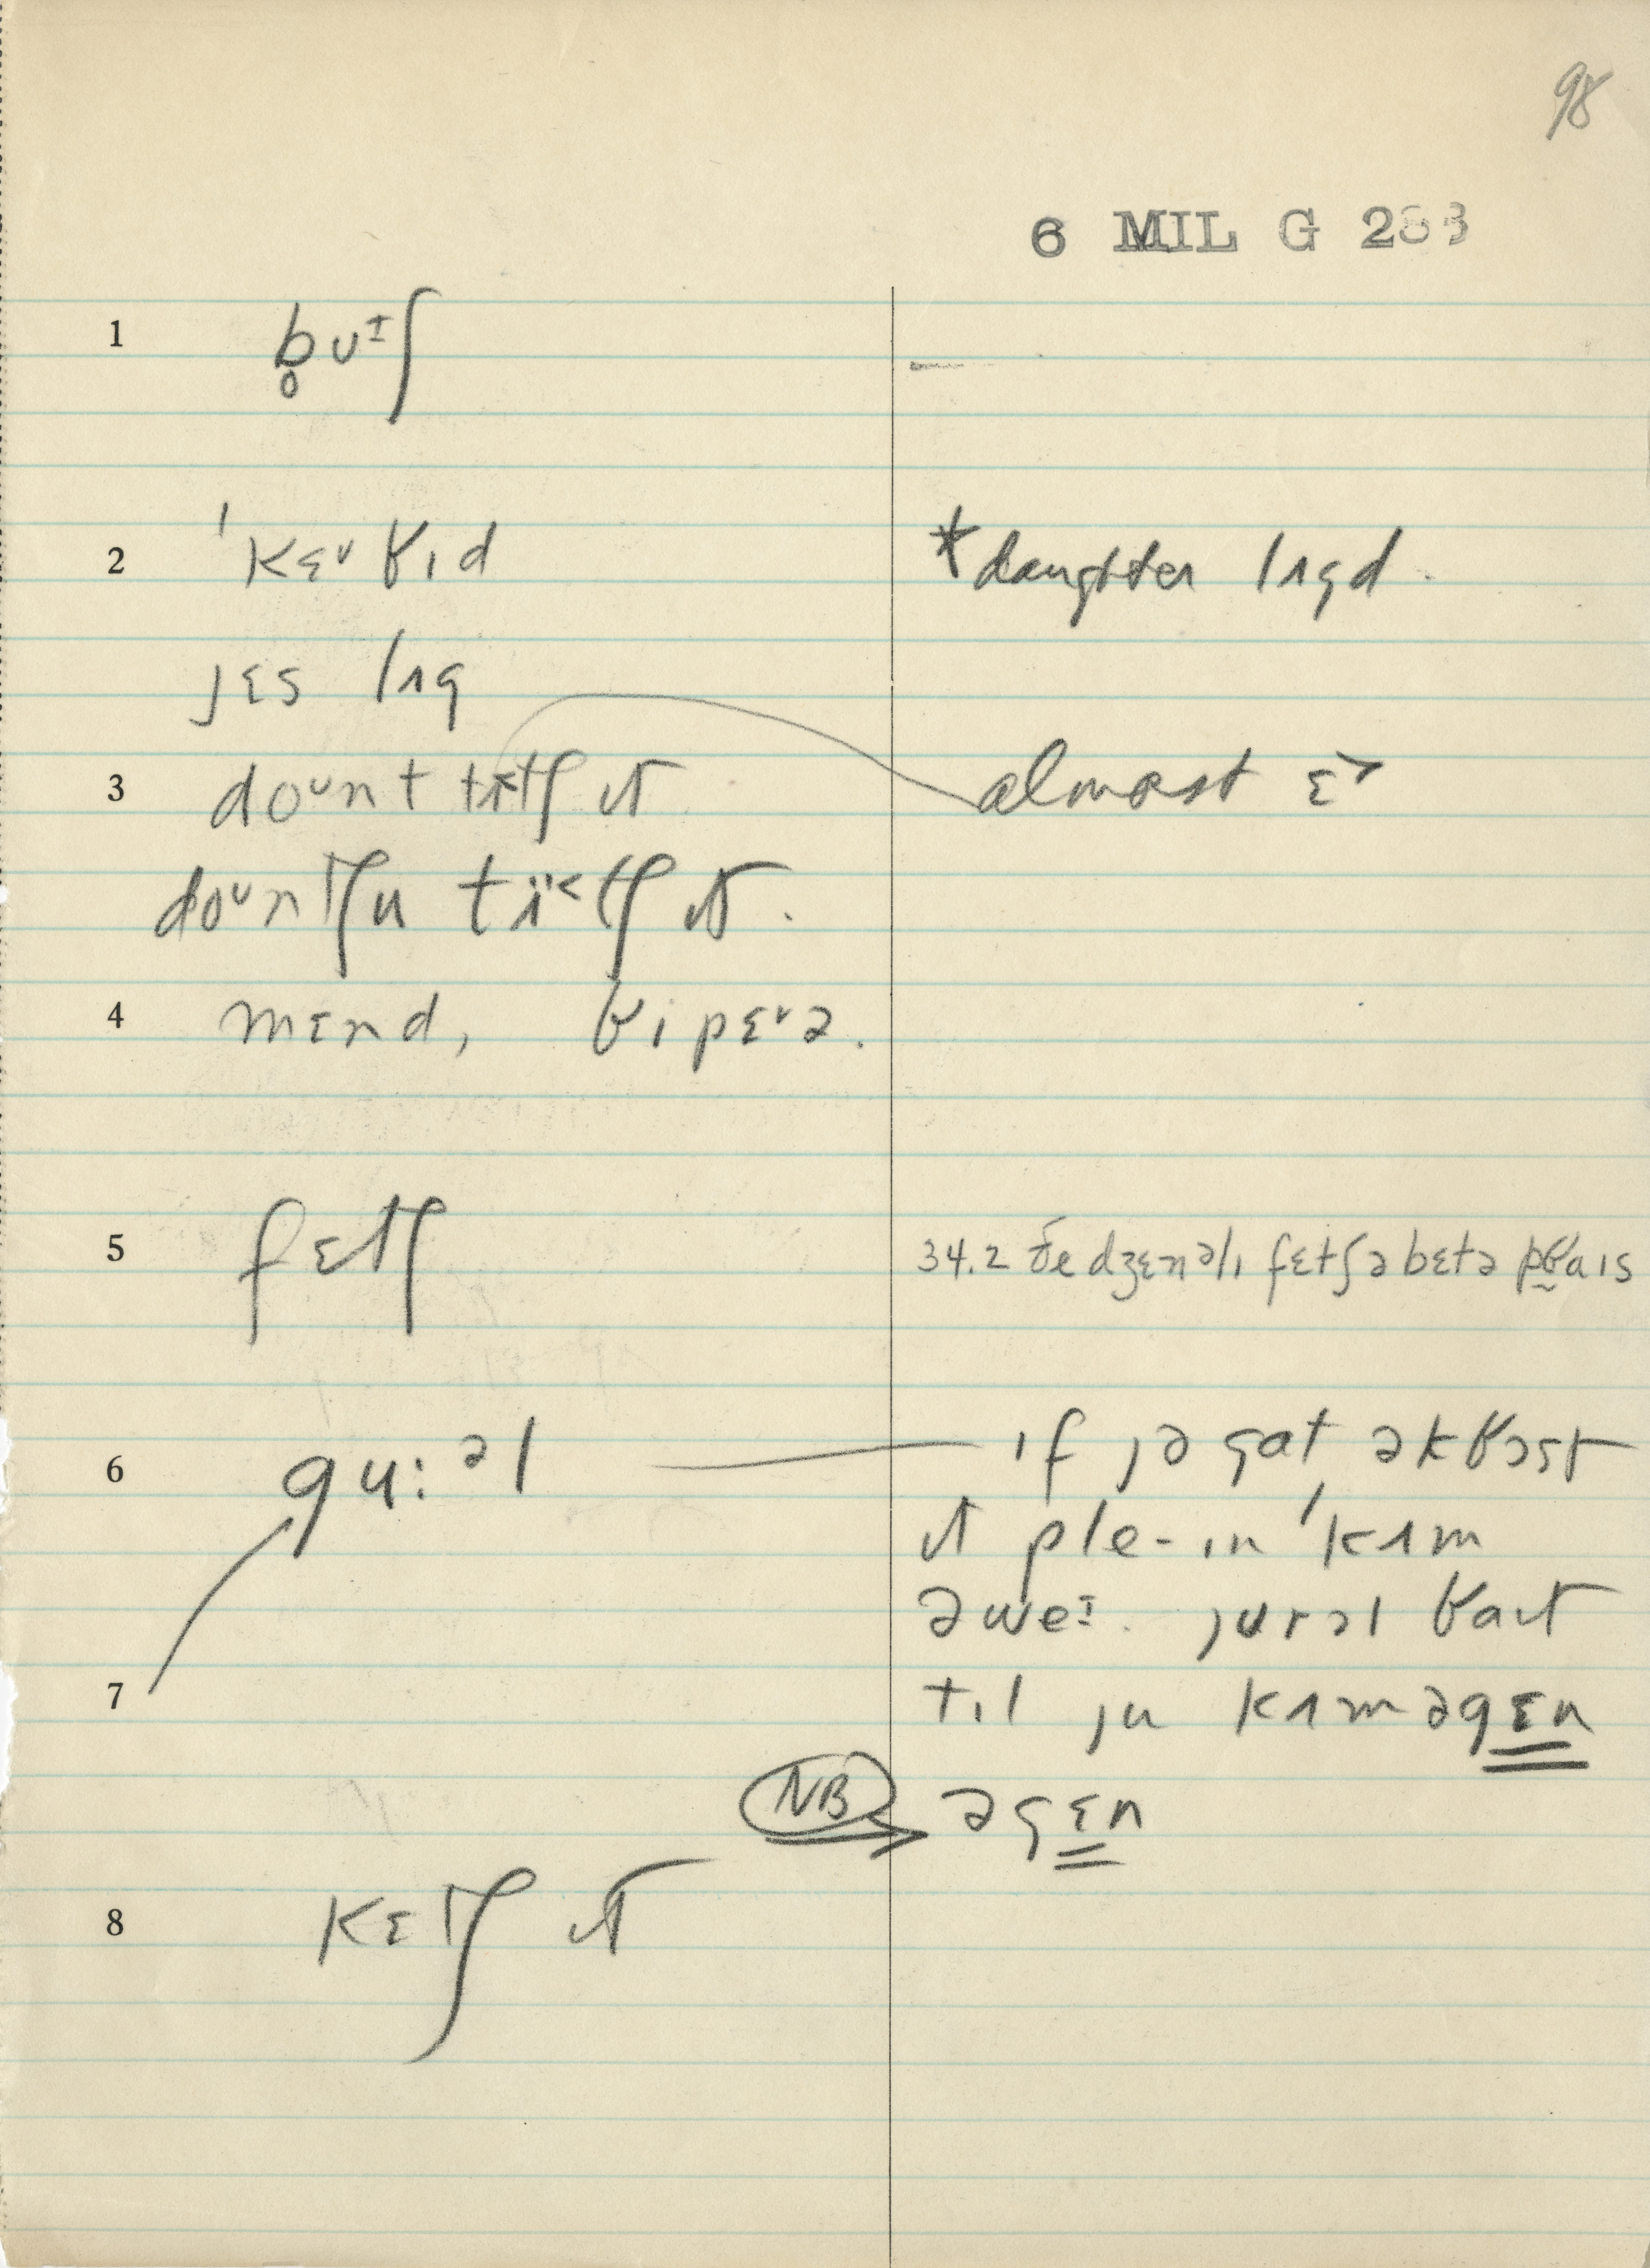 98
6 MIL G 2
1 b̥ʊᶦʃ
2 ˈkɛᶷɤɪd *daughter lʌgd.
jɛs lʌg
3 doᶷnt tɪtʃ ɪt almost ɛ˃
doᶷntʃu tɪ̈˂tʃ ɪt.
4 mɛnd, ɤipɛᶷə.
5 fɛtʃ 34.2 ðe dʒɛnəlɪ fɛtʃ ə bɛtə pɤaɪs
6 gu:ᵊl ɪf jə gat əkɤɔst
ɪt ple-ɪn ˈkʌm
əweᶦ. ɤaɪt
7 tɪl ju kʌm əgɛn
NB əgɛn
8 kɛtʃ ɪt